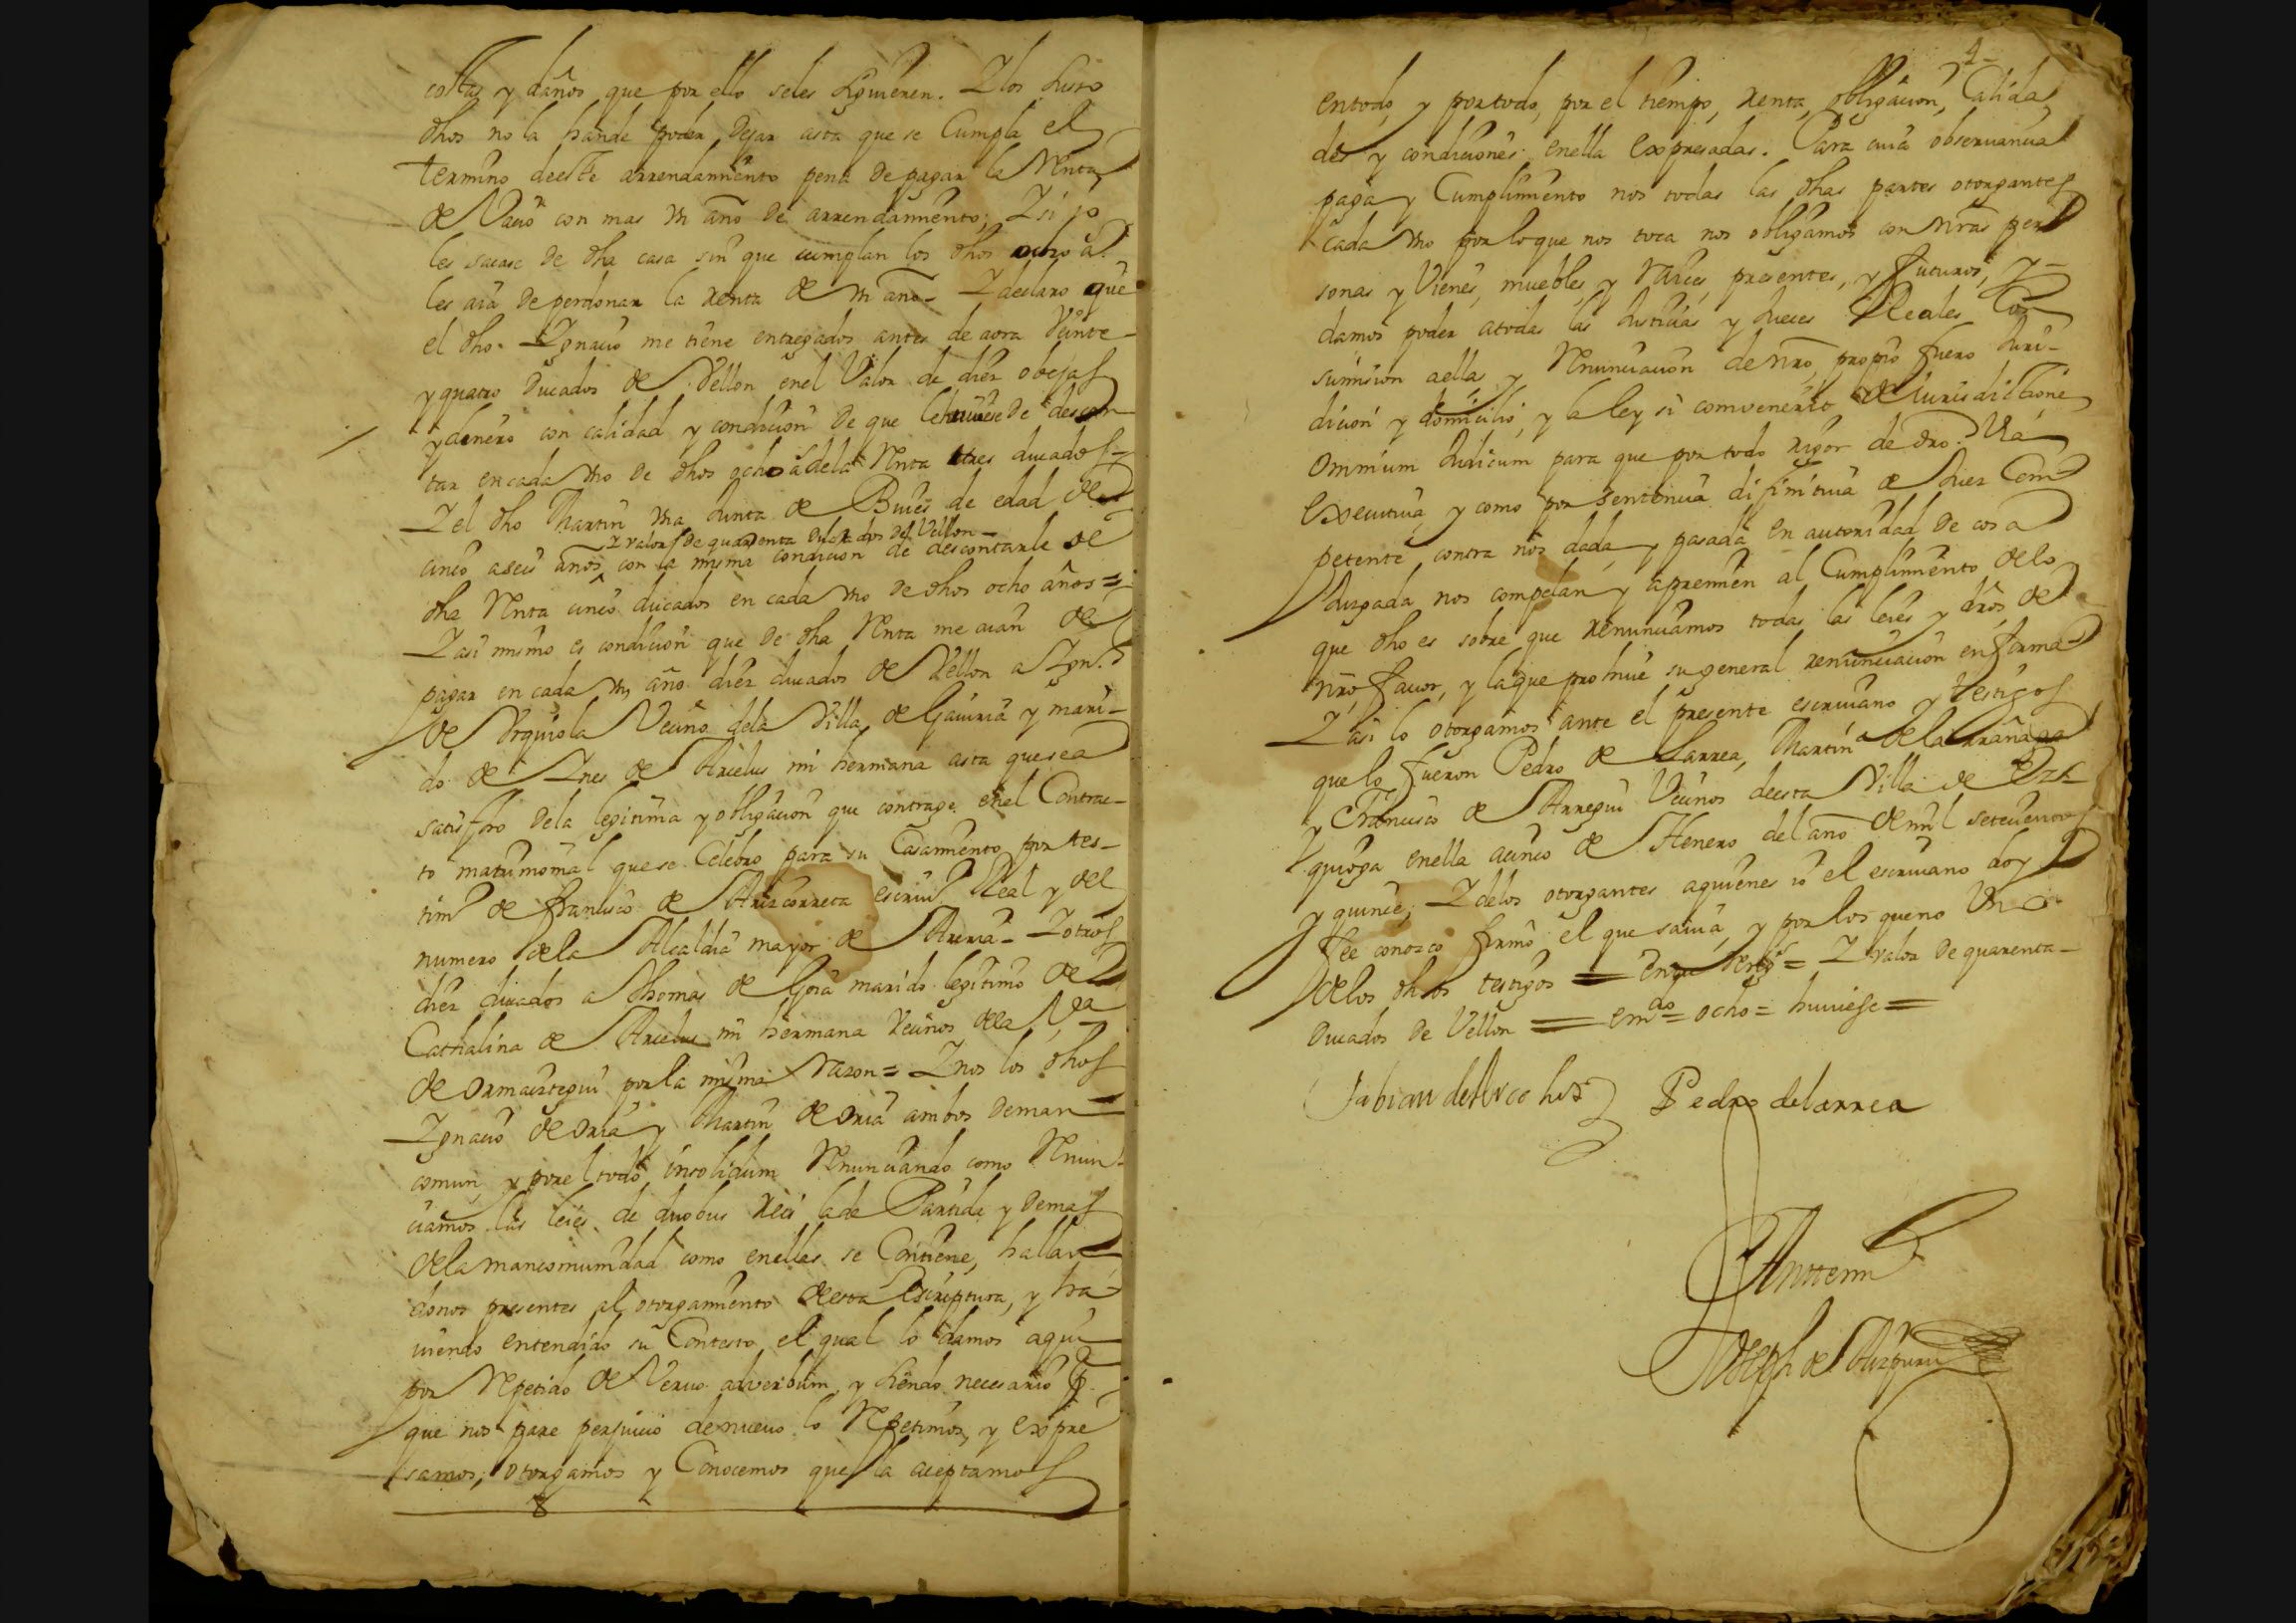 costas y daños que por ello seles siguieren. Y los susso
dhos no la hande poder dejar asta que se Cumpla el
termino deeste arrendamiento pena de pagar la Renta
de Vacio con mas vn año de arrendamiento, Y si yo
les sacase de dha casa sin que cumplan los dhos ocho a.s
les aia de perdonar la renta de vn año - Y declaro que
el dho Ygnacio me tiene entregados antes de aora Veinte
y quatro Ducados de Vellon enel Valor de diez obejas
y dinero con calidad y condicion de que le huuiese de descon
tar en cada vno de dhos ocho a.s dela Renta tres ducados -
Y el dho Martin vna Junta de Bueies de edad de
Y valor de quarenta Ducados de Vellon -
cinco a seis años con la misma condicion de descontarle de
dha Renta cinco ducados en cada vno de dhos ocho años =
Y asi mismo es condicion que de dha Renta me aian de
pagar en cada vn año diez ducados de Vellon a Ygn.o
de Vrquiola Vecino dela Villa de Gauiria y mari-
do de Ynes de Arcelus mi hermana asta que sea
satisfho dela legitima y obligacion que contraje enel Contrac-
to matrimonial que se Celebro para su Casamiento por tes-
tim.o de francisco de Arizcorreta escriu.o Real y del
numero dela Alcaldia mayor de Areria - Y otros
diez ducados a Thomas de Goia marido legitimo de
Cathalina de Arcelus mi hermana vecinos dela V.a
de Ormaiztegui por la misma razon = Y nos los dhos
Ygnacio de Oria y Martin de Oria ambos deman
comun y por el todo insolidum Renunciando como Renun-
ciamos las leies de duobus reis la de Partida y demas
dela mancomunidad como enellas se Contiene, hallan
donos presentes al otorgamiento deesta Escriptura, y ha
uiendo entendido su Contesto el qual lo damos aqui
por Repetido de Veruo adverbum y siendo necesario p.a
que nos pare perjuicio denueuo lo Repetimos, y expre
samos, otorgamos y Conocemos que la aceptamos
4
entodo, y portodo, por el tiempo, renta, obligacion, Calida
des y condiciones enella Expresadas. Para cuia obseruancia
paga y Cumplimiento nos todas las dhas partes otorgantes
cada vno por loque nos toca nos obligamos con nrãs per
sonas y Vienes, muebles y raices, presentes, y futuros, Y
damos poder atodas las Justicias y Jueces Reales Con
sumision aellas y Renunciacion de nrõ propio fuero Juri-
dicion y domicilio, y la ley si conuenerit de Iurisdictione
Omnium Judicum para que por todo rigor de dro. Via
executiua, y como por sentencia difinitiua de Juez Com
petente contra nos dada y pasada en autoridad de cosa
Juzgada nos compelan y apremien al Cumplimiento delo
que dho es sobre que renunciamos todas las leies y drõs de
nrõ fauor, y laque prohiue su general renunciacion en forma
Y asi lo otorgamos ante el presente escriuano y testigos
que lo fueron Pedro de Larrea, Martin de Larrañaga
y Francisco de Arregui Vecinos deesta Villa de Vrr-
quioga enella acinco de Henero del año de mil setecientos
y quince, Y delos otorgantes aquienes io el escriuano doy
fee conozco firmó el que sauia, y por los que no Vn.o
delos dhos testigos = Entre Reng.s = Y valor de quarenta
Ducados de Vellon = em.do = ocho = huuiese =
Pedro delarrea
Antemi
Joseph de Aizpuru